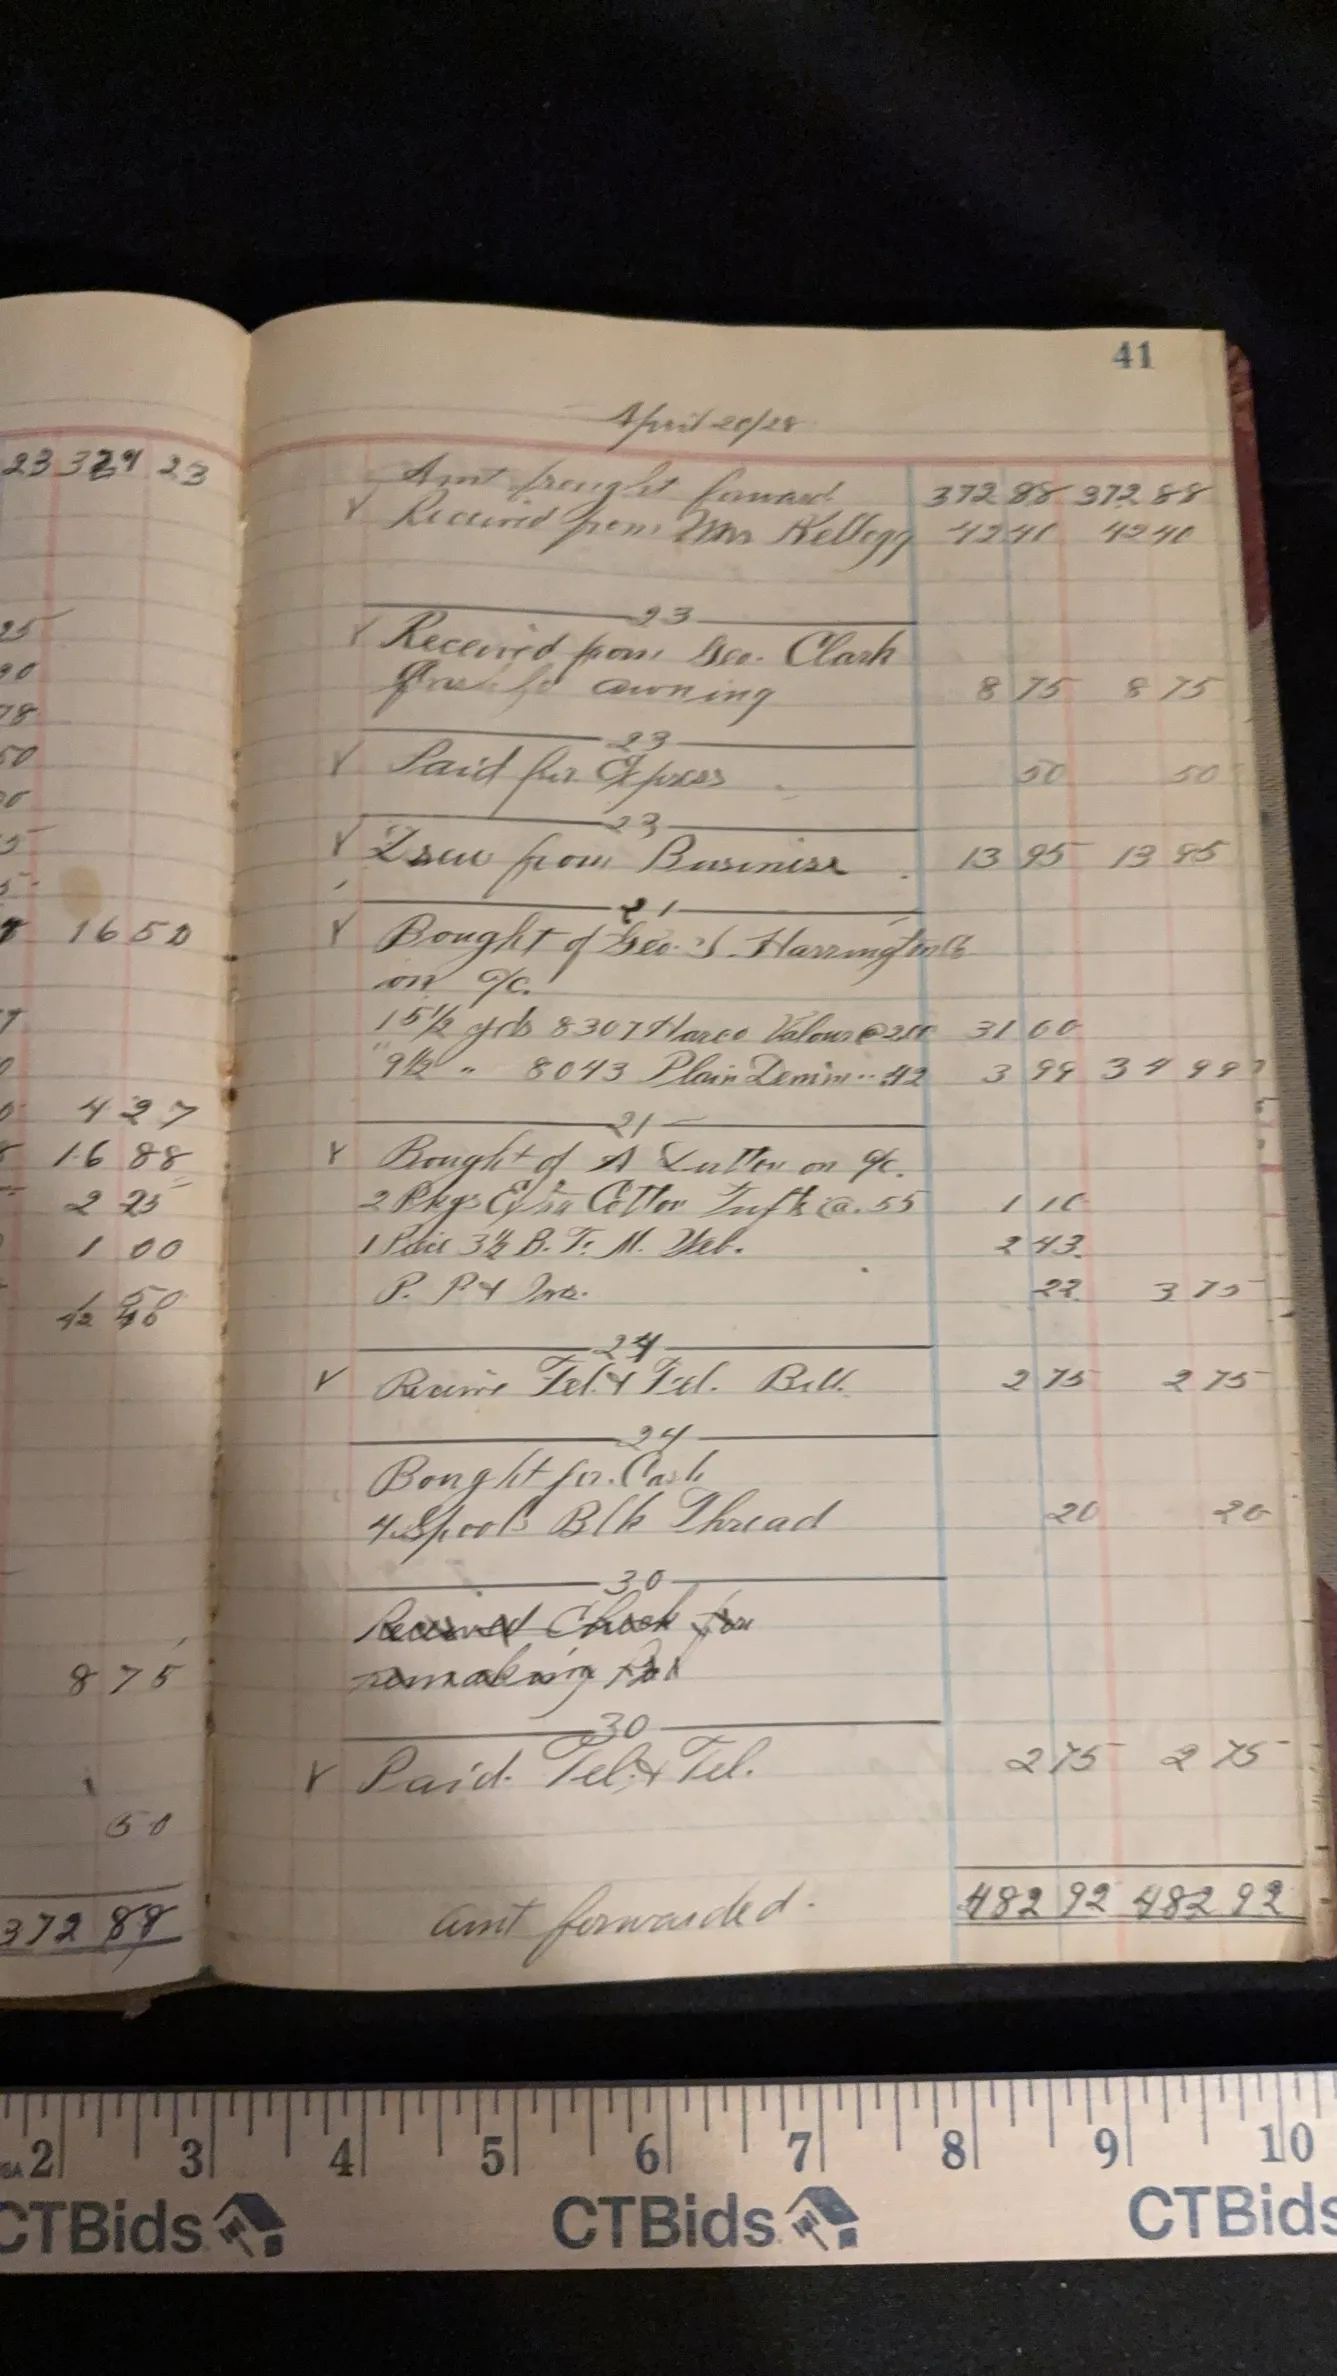 23 329 23
25
90
78
50
1650
427
16 88
2 25
1 00
50
42 40
8 75
50
372 88
41
April 20/28
Amt brought forward 372 88 372 88
Received from Mrs Kellogg 42 40 42 40
23
Received from Geo. Clark
for awning 8 75 8 75
23
Paid for Express 50 50
23
Drew from Business 13 95 13 95
21
Bought of Geo. S. Harrington Co
on a/c.
15½ yds 8307 Harco Valour @ 200 31 00
9½ " 8043 Plain Denim .. 42 3 99 34 99
21
Bought of A Lutton on a/c.
2 Pkgs Extra Cotton Tufts @ .55 1 10
1 Piece 3½ B. F. M. Web. 2 43
P. P & Ins. 22 3 75
24
Receive Tel. & Tel. Bill. 2 75 2 75
24
Bought for Cash
4 Spools Blk Thread 20 20
30
Received Check for
remaking
30
Paid Tel. & Tel. 2 75 2 75
amt forwarded. 482 92 482 92
2 3 4 5 6 7 8 9 10
CTBids CTBids CTBids